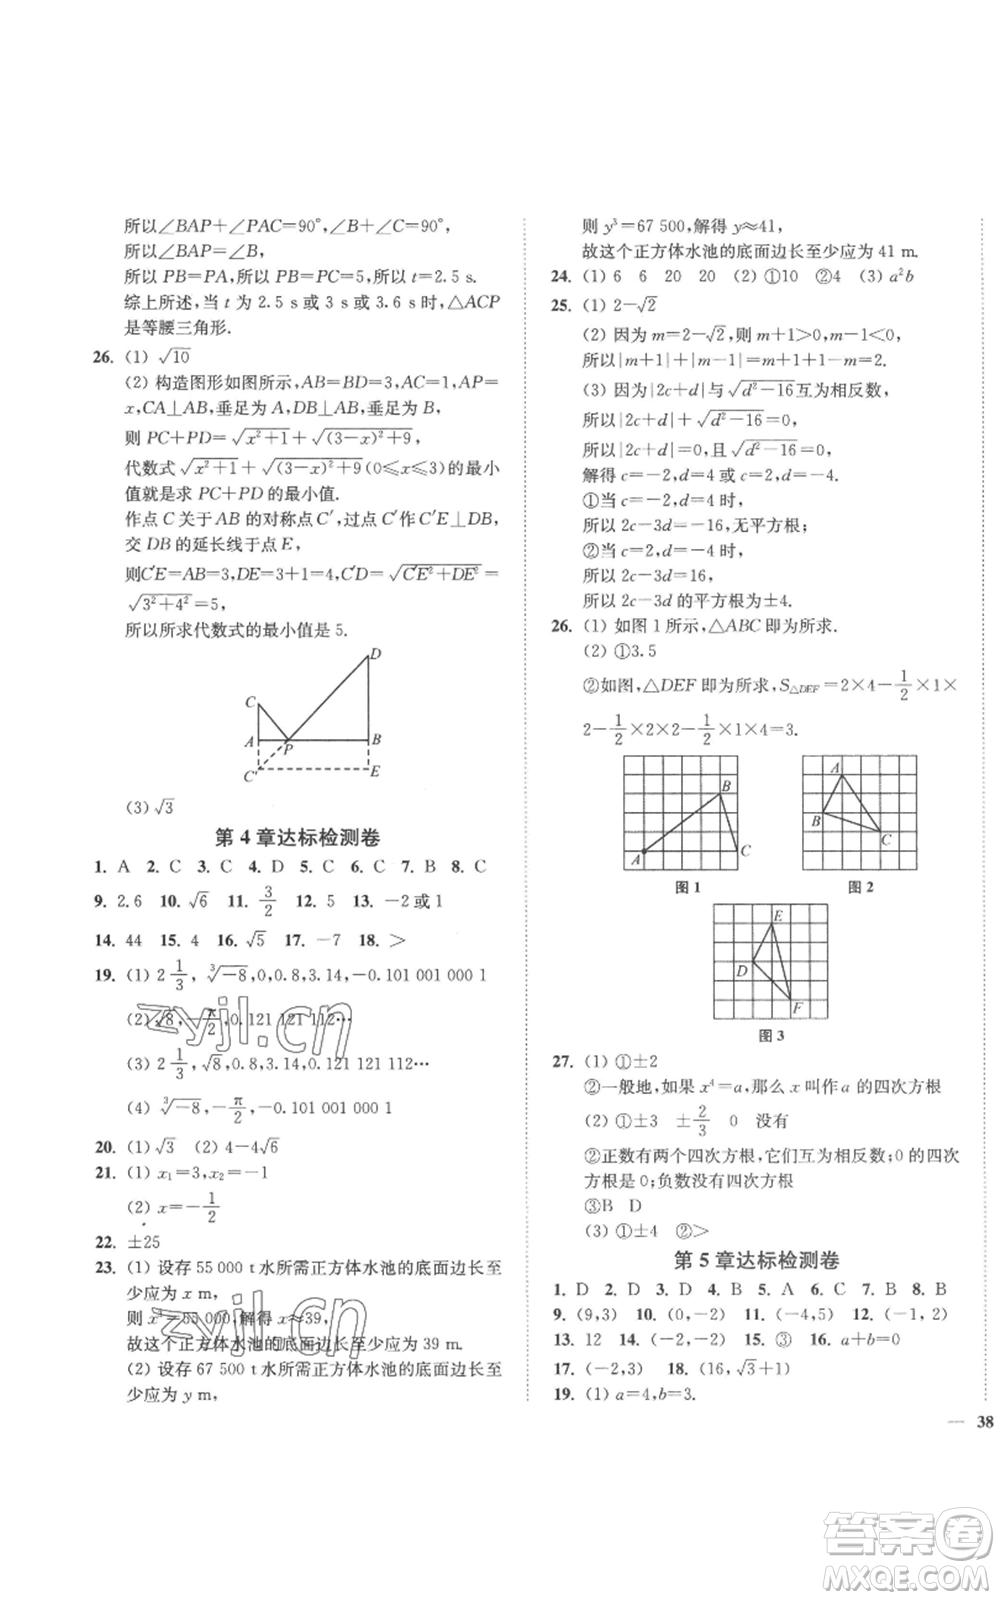 所以∠BAP+∠PAC=90°,∠B+∠C=90°,
所以∠BAP=∠B,
所以 PB=PA,所以 PB=PC=5,所以 t=2.5 s.
综上所述,当 t 为 2.5 s 或 3 s 或 3.6 s 时,△ACP
是等腰三角形.
26. (1) √10
(2) 构造图形如图所示,AB=BD=3,AC=1,AP=
x,CA⊥AB,垂足为 A,DB⊥AB,垂足为 B,
则 PC+PD=√(x²+1)+√((3-x)²+9),
代数式 √(x²+1)+√((3-x)²+9)(0≤x≤3)的最小
值就是求 PC+PD 的最小值.
作点 C 关于 AB 的对称点 C′,过点 C′作 C′E⊥DB,
交 DB 的延长线于点 E,
则C′E=AB=3,DE=3+1=4,C′D=√(C′E²+DE²)=
√(3²+4²)=5,
所以所求代数式的最小值是 5.
D
C
A P B
C′ E
(3) √3
第 4 章达标检测卷
1. A 2. C 3. C 4. D 5. C 6. C 7. B 8. C
9. 2.6 10. √6 11. 3/2 12. 5 13. -2或 1
14. 44 15. 4 16. √5 17. -7 18. >
19. (1) 2 1/3,∛-8,0,0.8,3.14,-0.101 001 000 1
(2) √8,-π/2,0.121 121 112…
(3) 2 1/3,√8,0.8,3.14,0.121 121 112…
(4) ∛-8,-π/2,-0.101 001 000 1
20. (1) √3 (2) 4-4√6
21. (1) x₁=3,x₂=-1
(2) x=-1/2
22. ±25
23. (1) 设存 55 000 t 水所需正方体水池的底面边长至
少应为 x m,
则 x³=55 000,解得 x≈39,
故这个正方体水池的底面边长至少应为 39 m.
(2) 设存 67 500 t 水所需正方体水池的底面边长至
少应为 y m,
则 y³=67 500,解得 y≈41,
故这个正方体水池的底面边长至少应为 41 m.
24. (1) 6 6 20 20 (2) ①10 ②4 (3) a²b
25. (1) 2-√2
(2) 因为 m=2-√2,则 m+1>0,m-1<0,
所以|m+1|+|m-1|=m+1+1-m=2.
(3) 因为|2c+d|与√(d²-16)互为相反数,
所以|2c+d|+√(d²-16)=0,
所以|2c+d|=0,且√(d²-16)=0,
解得 c=-2,d=4 或 c=2,d=-4.
①当 c=-2,d=4 时,
所以 2c-3d=-16,无平方根;
②当 c=2,d=-4 时,
所以 2c-3d=16,
所以 2c-3d 的平方根为±4.
26. (1) 如图 1 所示,△ABC 即为所求.
(2) ①3.5
②如图,△DEF 即为所求,S△DEF=2×4-1/2×1×
2-1/2×2×2-1/2×1×4=3.
A B C
图 1
A B C
图 2
E D F
图 3
27. (1) ①±2
②一般地,如果 x⁴=a,那么 x 叫作 a 的四次方根
(2) ①±3 ±2/3 0 没有
②正数有两个四次方根,它们互为相反数;0 的四次
方根是 0;负数没有四次方根
③B D
(3) ①±4 ②>
第 5 章达标检测卷
1. D 2. D 3. D 4. B 5. A 6. C 7. B 8. B
9. (9,3) 10. (0,-2) 11. (-4,5) 12. (-1,2)
13. 12 14. (-2,-2) 15. ③ 16. a+b=0
17. (-2,3) 18. (16,√3+1)
19. (1) a=4,b=3.
— 38
zyjl.cn
zyjl.cn
答案卷
MXQE.COM